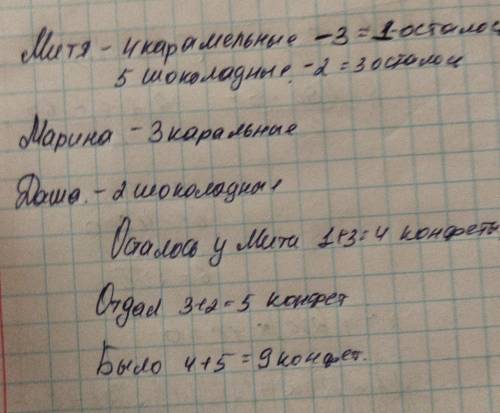 Митя - 4 карамельные -3 = 1 осталос
5 шоколадные -2 = 3 осталос
Марина - 3 каральные
Даша - 2 шоколадные
Осталось у Мити 1+3=4 конфеты
Отдал 3+2=5 конфет
Было 4+5=9 конфет.